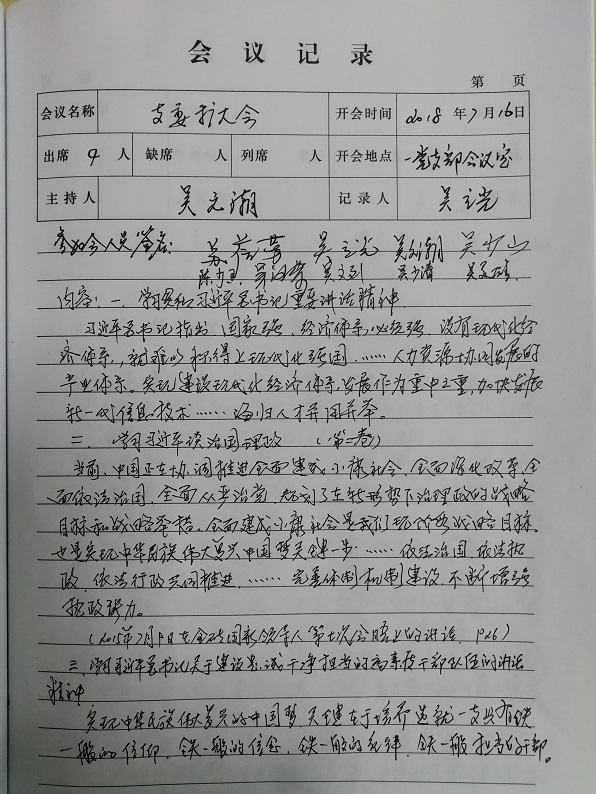 会议记录
第 页
会议名称 支委扩大会 开会时间 2018年7月16日
出席 9 人 缺席 人 列席 人 开会地点 一党支部会议室
主持人 吴元潮 记录人 吴立光
参加会人员签名: 吴立光 吴少山
吴文列 吴少清
内容:一、学习贯彻习近平总书记重要讲话精神
习近平总书记指出,国家强,经济体系必须强,没有现代化经
济体系,就难以称得上现代化强国……人力资源协同发展的
产业体系。实现建设现代化经济体系发展作为重中之重,加快发展
新一代信息技术……海归人才并用并举。
二、学习习近平谈治国理政 (第二卷)
当前,中国正在协调推进全面建成小康社会,全面深化改革,全
面依法治国,全面从严治党,规划了在新形势下治理政的战略
目标和战略举措。全面建成小康社会是我们现阶段战略目标,
也是实现中华民族伟大复兴中国梦关键一步……依法治国,依法执
政,依法行政共同推进,……完善体制机制建设,不断增强
执政能力。
(2015年7月9日在金砖国家领导人第七次会晤上的讲话,P26)
三、学习习近平总书记关于建设忠诚干净担当的高素质干部队伍的讲话
精神
实现中华民族伟大复兴的中国梦,关键在于培养造就一支具有铁
一般的信仰,铁一般的信念,铁一般的纪律,铁一般担当的干部。